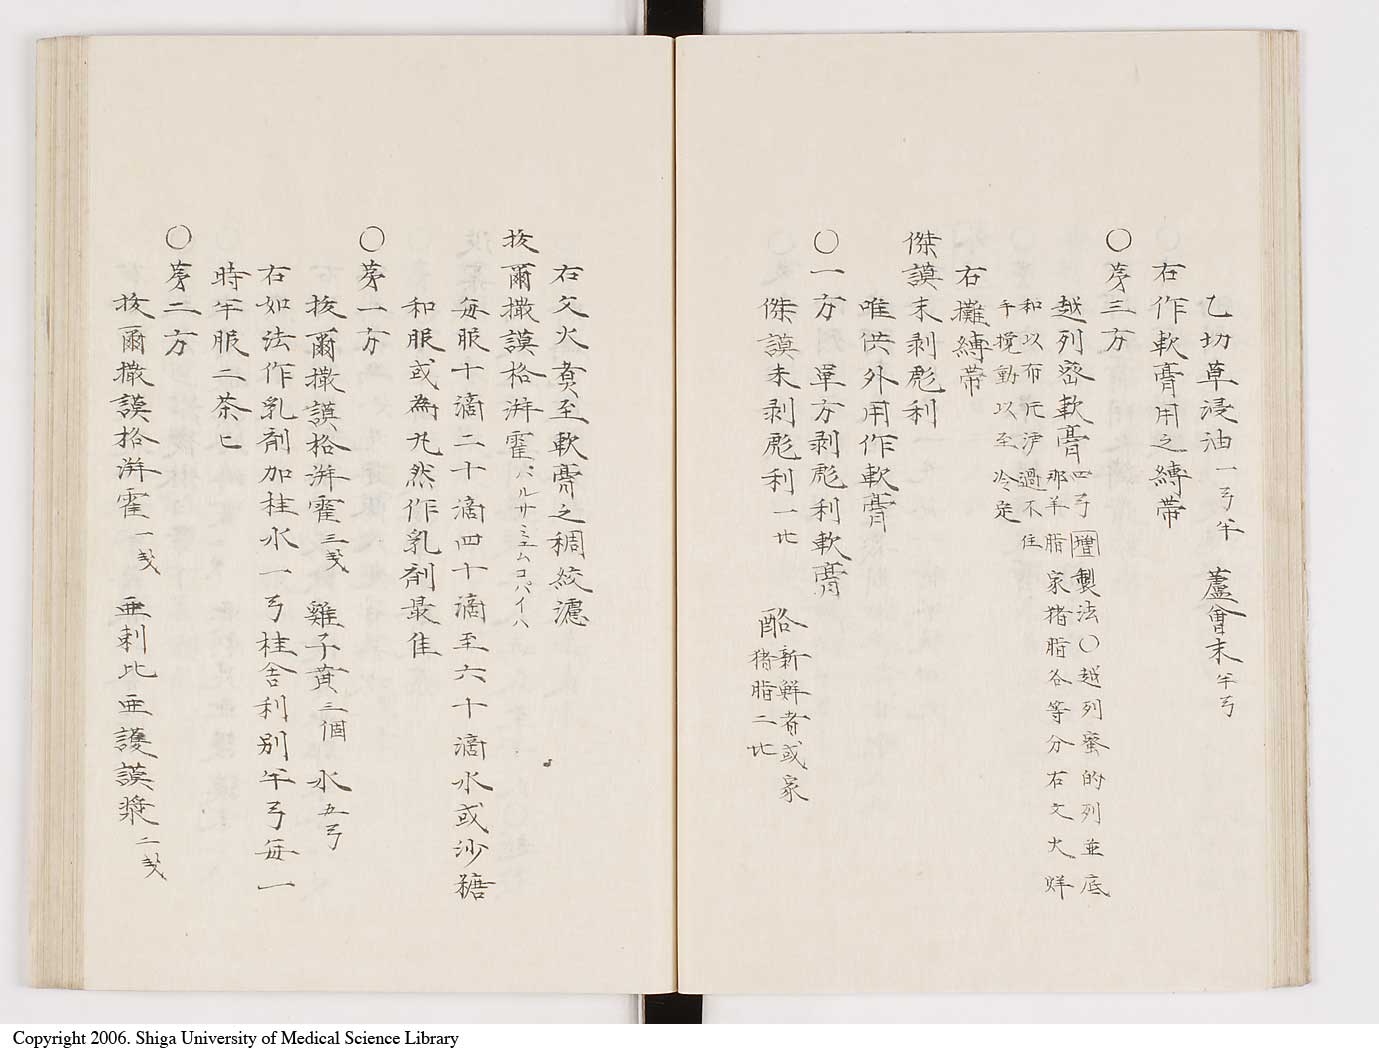 乙切草浸油一弓半 蘆會末半弓
右作軟膏用之縛帯
〇苐三方
越列密軟膏四弓 増製法〇越列蜜的列並底
那羊脂家猪脂各等分右文火烊
和以布片浄過不住
手攪動以至冷定
右攤縛帯
傑謨末剥彪利
唯供外用作軟膏
〇一方 単方剥彪利軟膏
傑謨末剥彪利一比 酪新鮮者或家
猪脂二比
右文火煑至軟膏之稠絞濾
抜爾撒謨格湃霍バルサミュムコパイハ
毎服十滴二十滴四十滴至六十滴水或沙糖
和服或為丸然作乳剤最佳
〇苐一方
抜爾撒謨格湃霍三戔 雞子黄三個 水五弓
右如法作乳剤加桂水一弓桂舎利別半弓毎一
時半服二茶匕
〇苐二方
抜爾撒謨格湃霍一戔 亜剌比亜護謨漿二戔
Copyright 2006. Shiga University of Medical Science Library